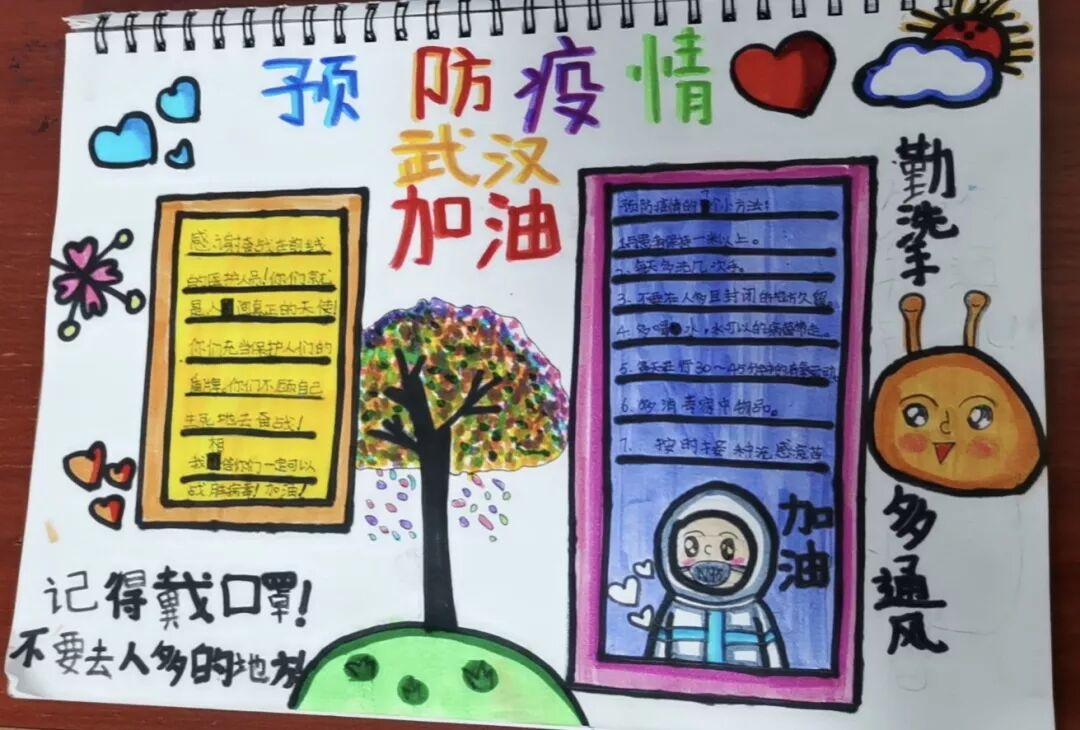 预防疫情
武汉
加油
感谢奋战在前线
的医护人员!你们就
是人间真正的天使!
你们充当保护人们的
盾牌,你们不顾自己
生死地去奋战!
我相信你们一定可以
战胜病毒!加油!
预防疫情的7个小方法:
保持一米以上。
2、每天多洗几次手。
3、不要在人多且封闭的地方久留。
4、多喝水,水可以的病菌带走。
5、每天进行30~45分钟的
6、多消毒家中物品。
7、按时接种流感疫苗
加油
勤洗手
多通风
记得戴口罩!
不要去人多的地方